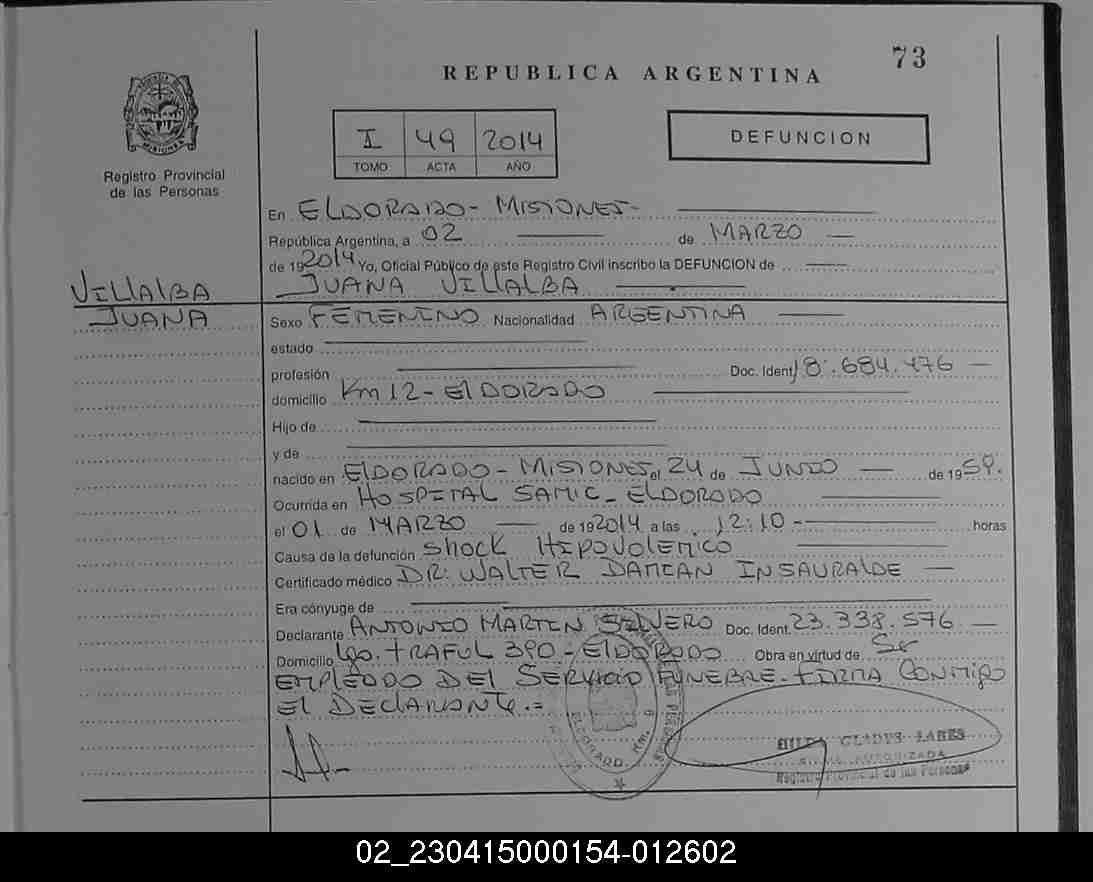 73
REPUBLICA ARGENTINA
I 49 2014
TOMO ACTA AÑO
DEFUNCION
Registro Provincial
de las Personas
En ELDORADO - MISIONES -
República Argentina, a 02 de MARZO
de 192014 Yo, Oficial Público de este Registro Civil inscribo la DEFUNCION de
VILLALBA
JUANA
JUANA VILLALBA
Sexo FEMENINO Nacionalidad ARGENTINA
estado
profesión Doc. Ident. 18.684.476
domicilio Km 12 - ElDORADO
Hijo de
y de
nacido en ElDORADO - MISIONES el 24 de JUNIO de 1959.
Ocurrida en HOSPITAL SAMIC - ELDORADO
el 01 de MARZO de 192014 a las 12:10 - horas
Causa de la defunción SHOCK HIPOVOLEMICO
Certificado médico DR: WALTER DAMIAN INSAURALDE
Era cónyuge de
Declarante ANTONIO MARTIN SILVERO Doc. Ident. 23.338.576
Domicilio Lgo. TRAFUL 390 - ElDORADO Obra en virtud de Sr
EMPLEADO DEl SERVICIO FUNEBRE. FIRMA CONMIGO
El DEClARANTE.=
ELDORADO Km. 9
HILDA GLADYS LARES
FIRMA AUTORIZADA
Registro Provincial de las Personas
02_230415000154-012602